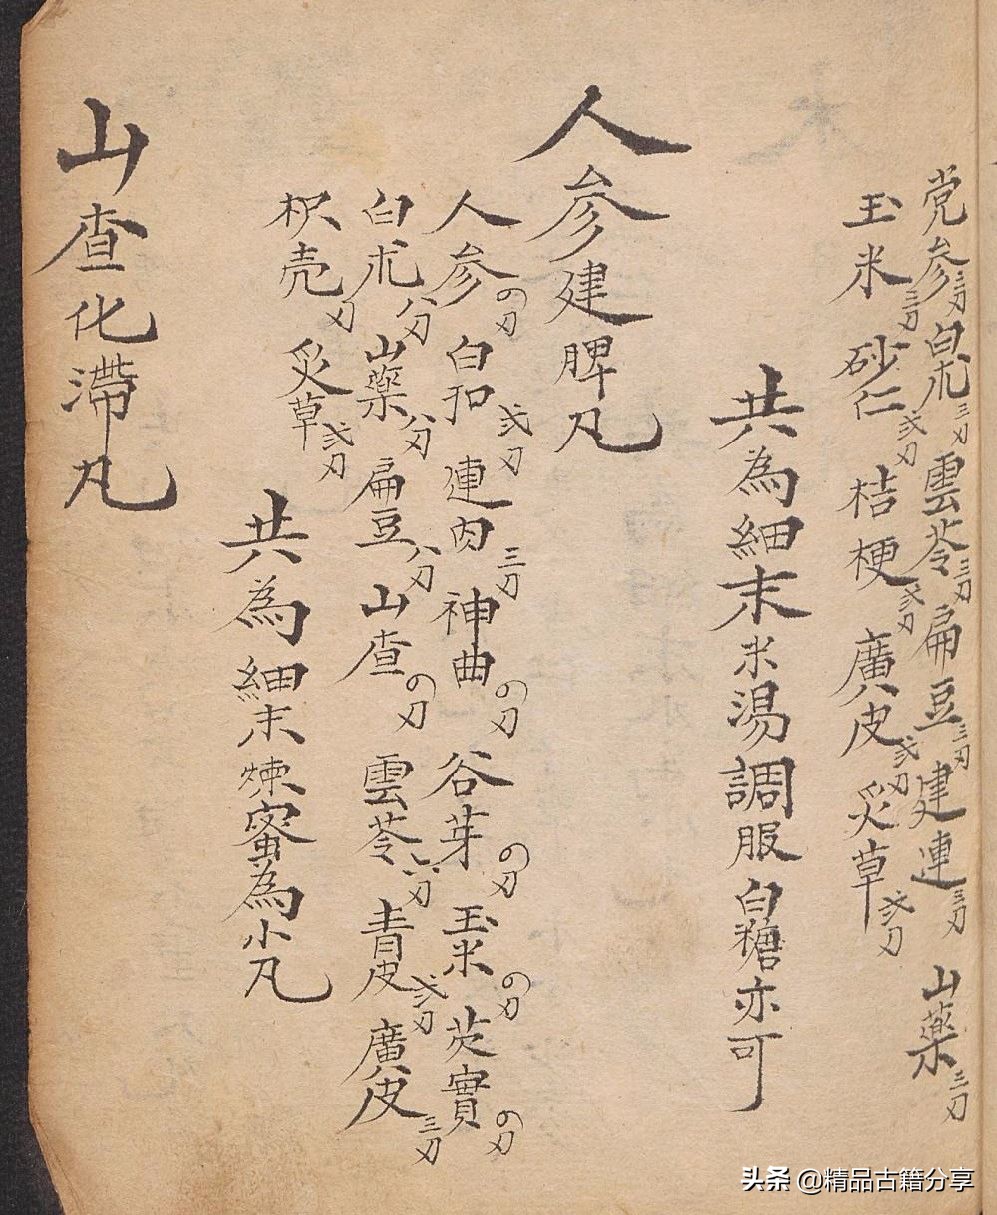 党参三刃白朮三刃雲苓三刃扁豆三刃建連三刃山藥三刃
玉米三刃砂仁弍刃桔梗弍刃廣皮弍刃炙草弍刃
共為細末米湯調服白糖亦可
人参建脾凡
人参四刃白扣弍刃連肉三刃神曲四刃谷芽四刃玉米四刃芡實四刃
白朮八刃山藥八刃扁豆八刃山查四刃雲苓六刃青皮弍刃廣皮三刃
枳壳刃炙草弍刃
共為細末煉蜜為小凡
山查化滯凡
头条 @精品古籍分享